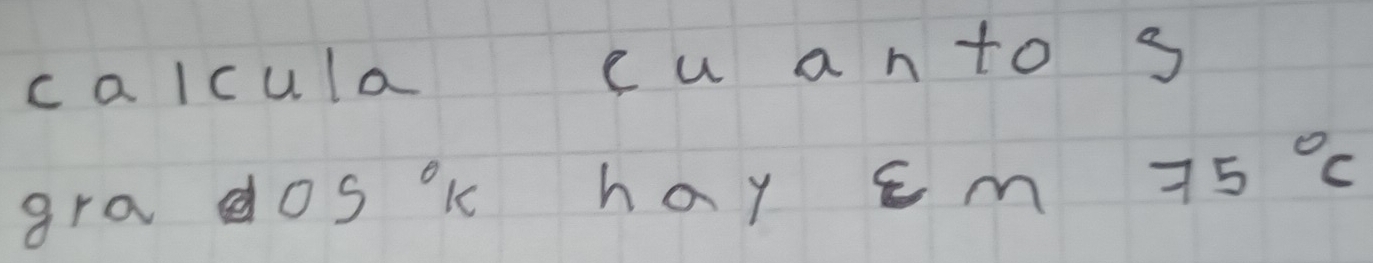 calcula cuantos
grados °k hay Em 75 °c